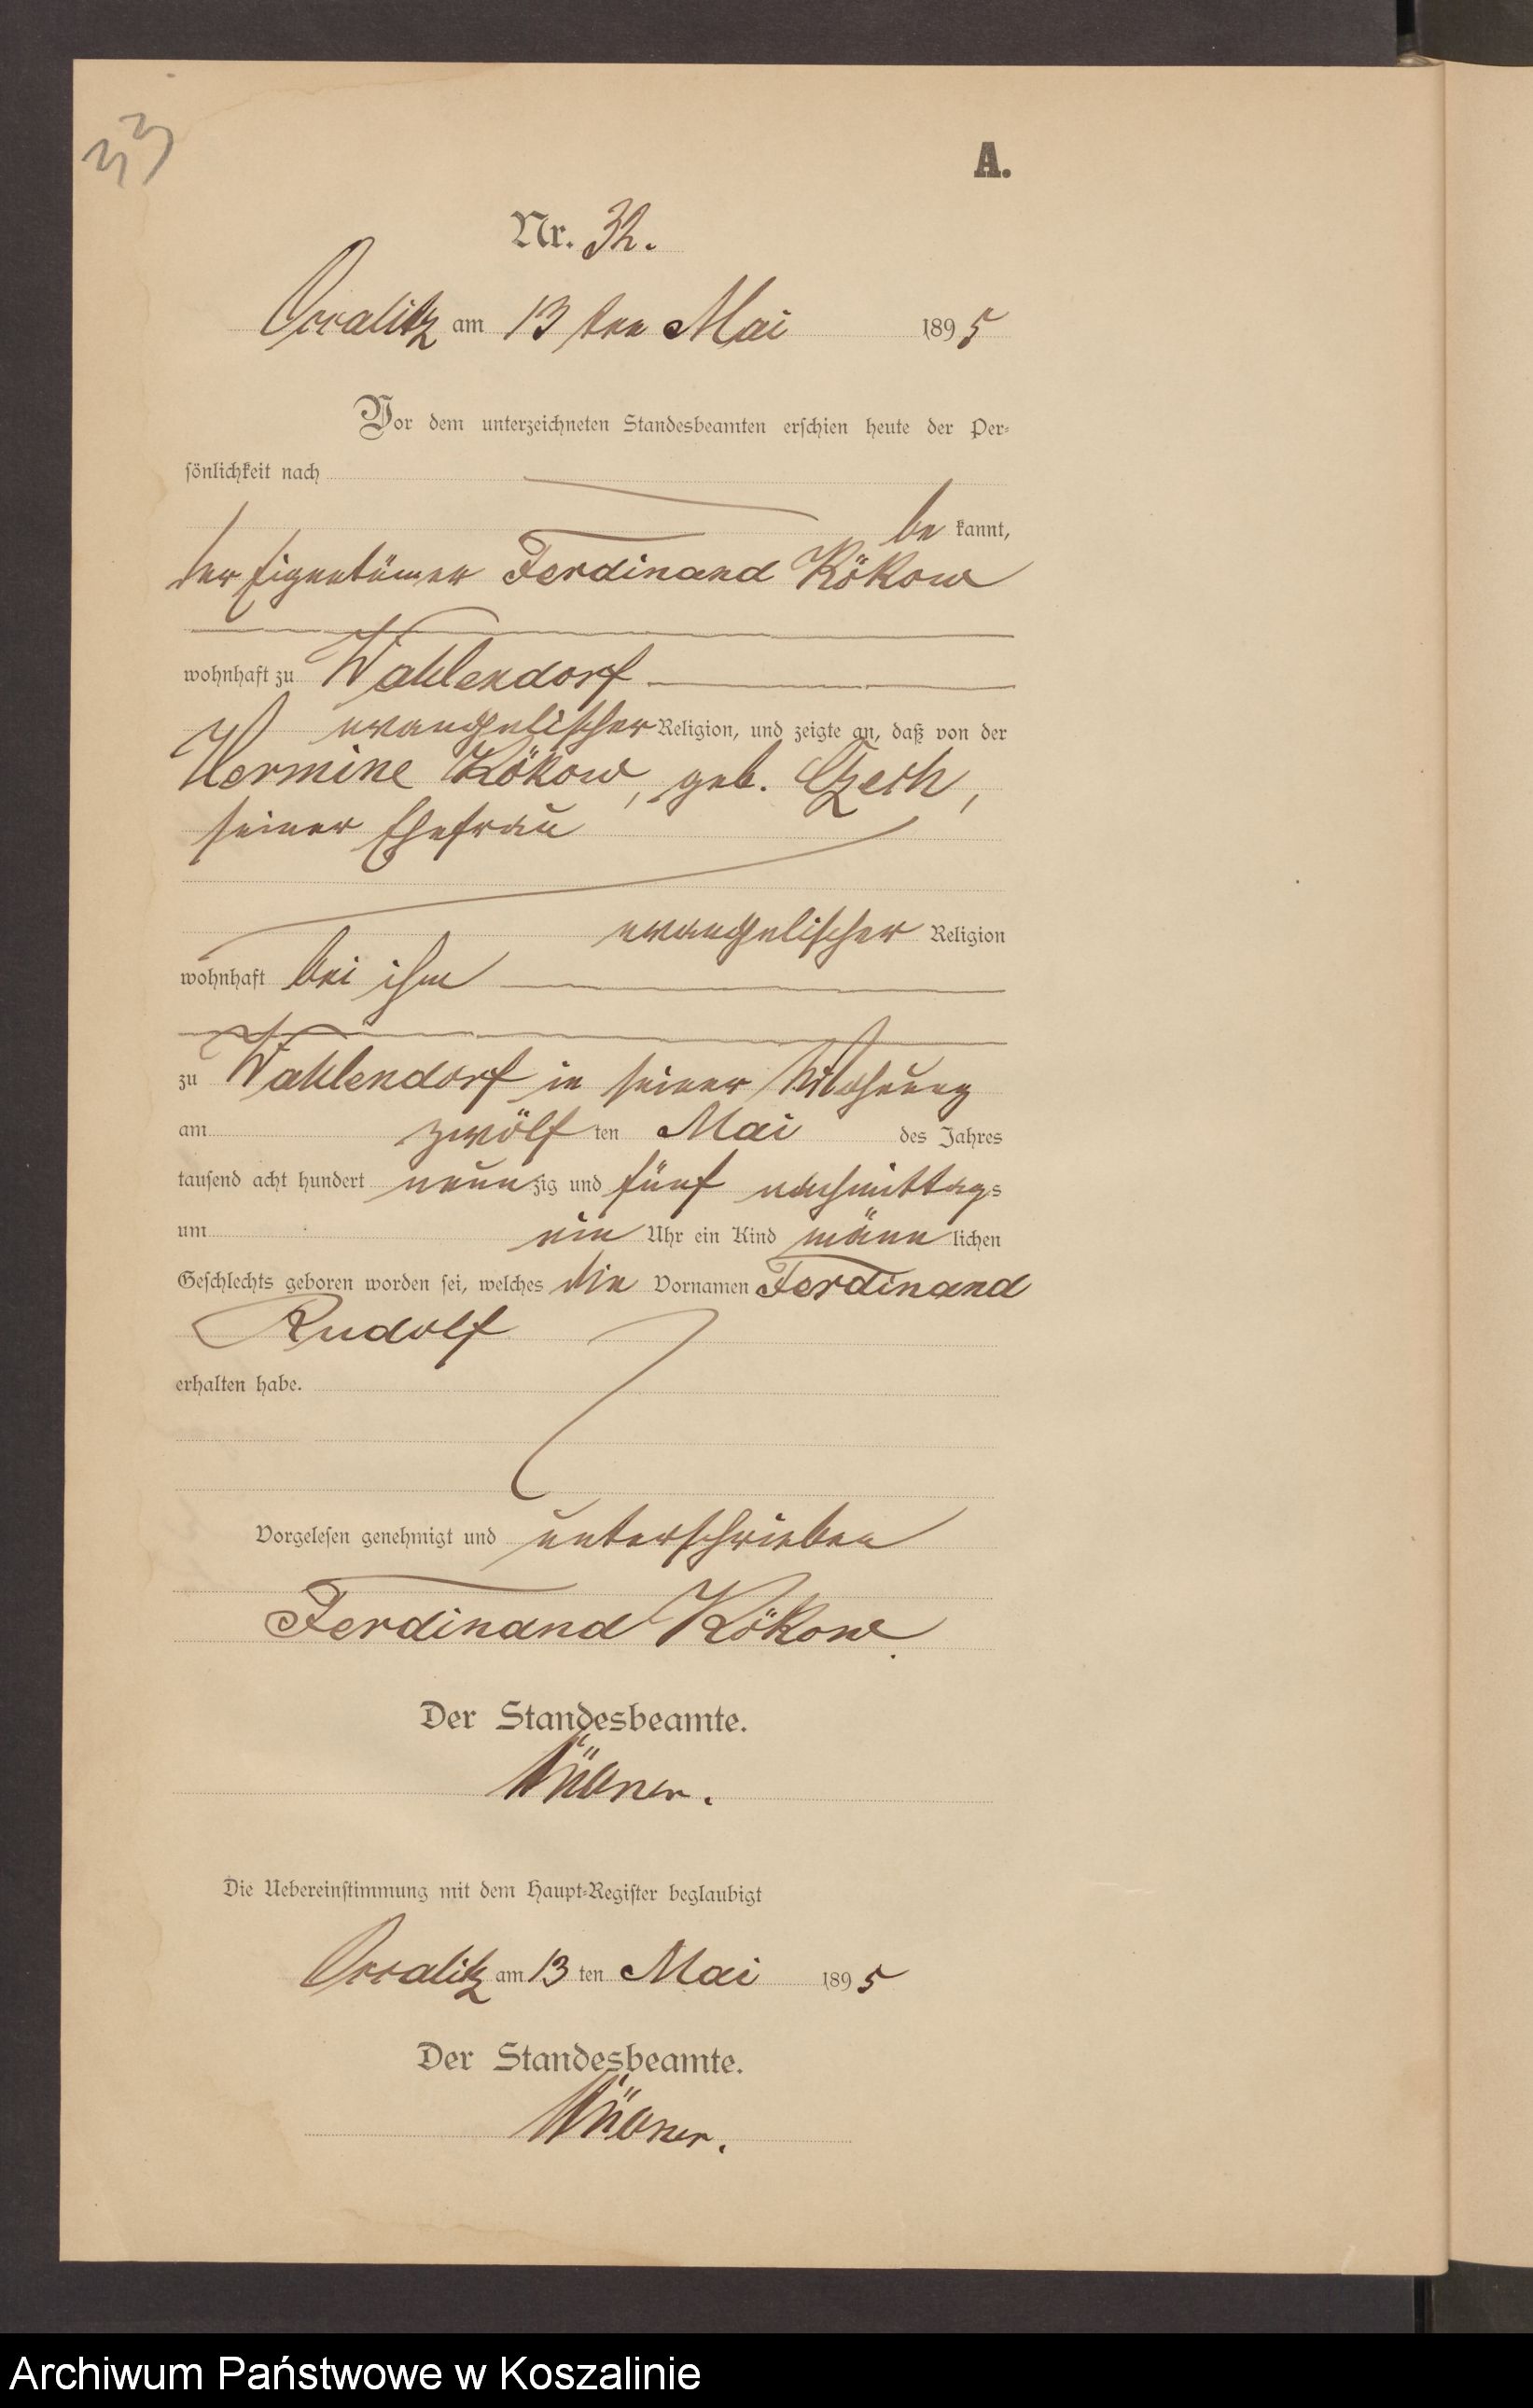 33
A.
Nr. 32.
am 13 ten Mai 1895
Vor dem unterzeichneten Standesbeamten erschien heute der Per-
sönlichkeit nach
be kannt,
der Eigentümer Ferdinand Kökow
wohnhaft zu Wahlendorf
evangelischer Religion, und zeigte an, daß von der
Hermine Kökow, geb. Czech,
seiner Ehefrau
evangelischer Religion
wohnhaft bei ihm
zu Wahlendorf in seiner Wohnung
am zwölf ten Mai des Jahres
tausend acht hundert neunzig und fünf nachmittags
um ein Uhr ein Kind männlichen
Geschlechts geboren worden sei, welches die Vornamen Ferdinand
Rudolf
erhalten habe.
Vorgelesen genehmigt und unterschrieben
Ferdinand Kökow.
Der Standesbeamte.
Die Uebereinstimmung mit dem Haupt-Register beglaubigt
am 13 ten Mai 1895
Der Standesbeamte.
Archiwum Państwowe w Koszalinie